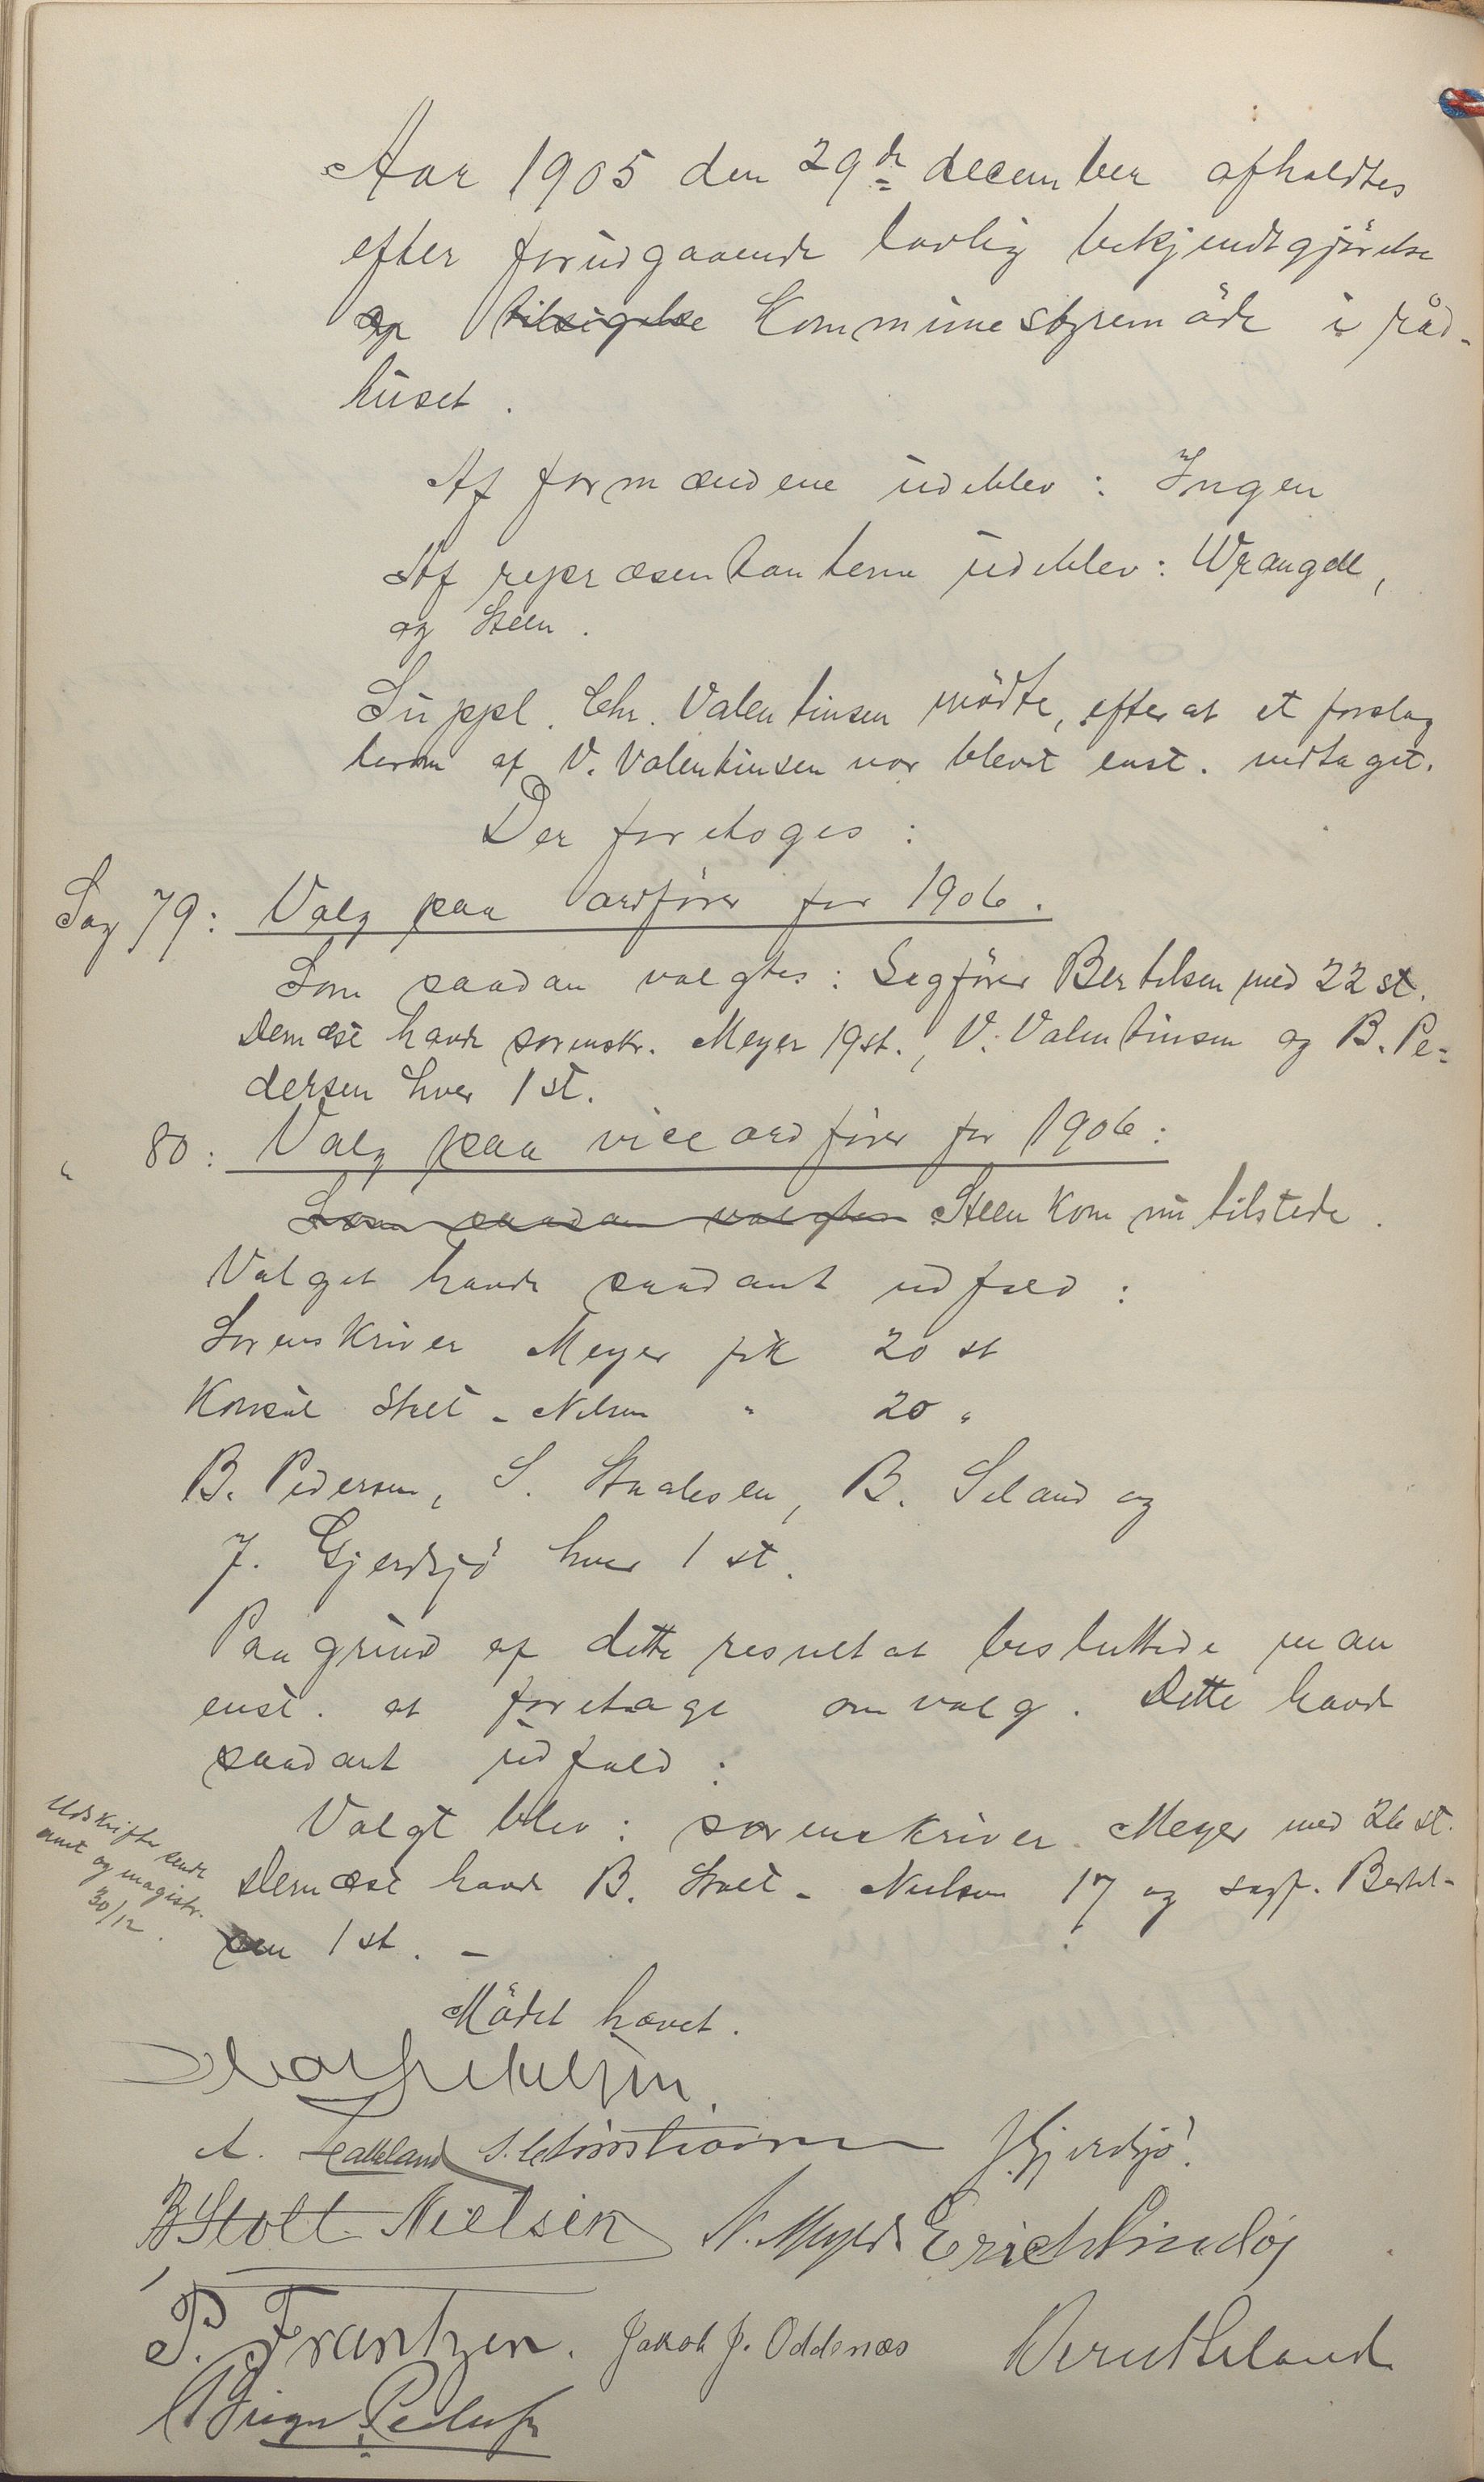 Aar 1905 den 29de december afholdtes
efter forudgaaende lovlig bekjendtgjörelse
og tilsigelse Kommunestyremöde i råd-
huset.
Af formændene udeblev: Ingen
Af repræsentanterne udeblev: Wrangell,
og Steen.
Suppl. Chr. Valentinsen mödte, efter at et forslag
herom af V. Valentinsen var blevet enst. vedtaget.
Der foretoges:
Sag 79: Valg paa ordförer for 1906.
Som saadan valgtes: Sagförer Bertelsen med 22 st.
Dernæst havde sorenskr. Meyer 19 st., V. Valentinsen og B. Pe-
dersen hver 1 st.
" 80: Valg paa viceordförer for 1906:
Som saadan valgtes Steen kom nu tilstede.
Valget havde saadant udfald:
Sorenskriver Meyer fik 20 st
Konsul Stolt-Nielsen " 20 "
B. Pedersen, S. Staalesen, B. Seland og
J. Gjerdsjö hver 1 st.
Paa grund af dette resultat besluttede man
enst. at foretage omvalg. Dette havde
saadant udfald:
Valgt blev: sorenskriver Meyer med 26 st.
Dernæst havde B. Stolt-Nielsen 17 og sagf. Bertel-
sen 1 st. -
Udskrifter sendt
amt og magistr.
30/12.
Mödet hævet.
A. S. Christiansen J Gjerdsjö.
B Stolt-Nielsen N. Meyer Erich Lindöe
P. Frantzen. Jakob J. Oddenæs Bernt Seland
Birger Pedersen